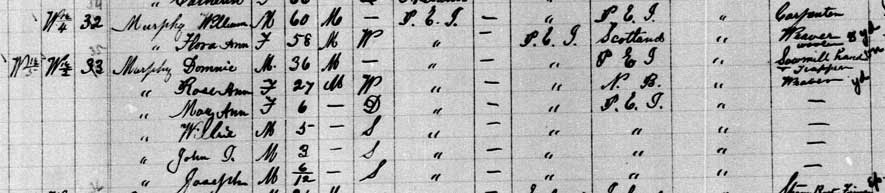 W 1½/4 32 Murphy William M 60 M — P.E.I. — „ P.E.I. „ Carpenter
„ Flora Ann F 58 M W „ — P.E.I. Scotland „ Weaver
33 Murphy Domnic M 36 M — „ — „ P.E.I. „ Sawmill hand
Trapper
„ Rose Ann F 27 M W „ — „ N.B. „ Weaver yd
„ Mary Ann F 6 — D „ — „ P.E.I. „ —
„ Willie M 5 — S „ — „ „ „ —
„ John T. M 3 — S „ — „ „ „ —
„ Joseph M 6/12 — S „ — „ „ „ —